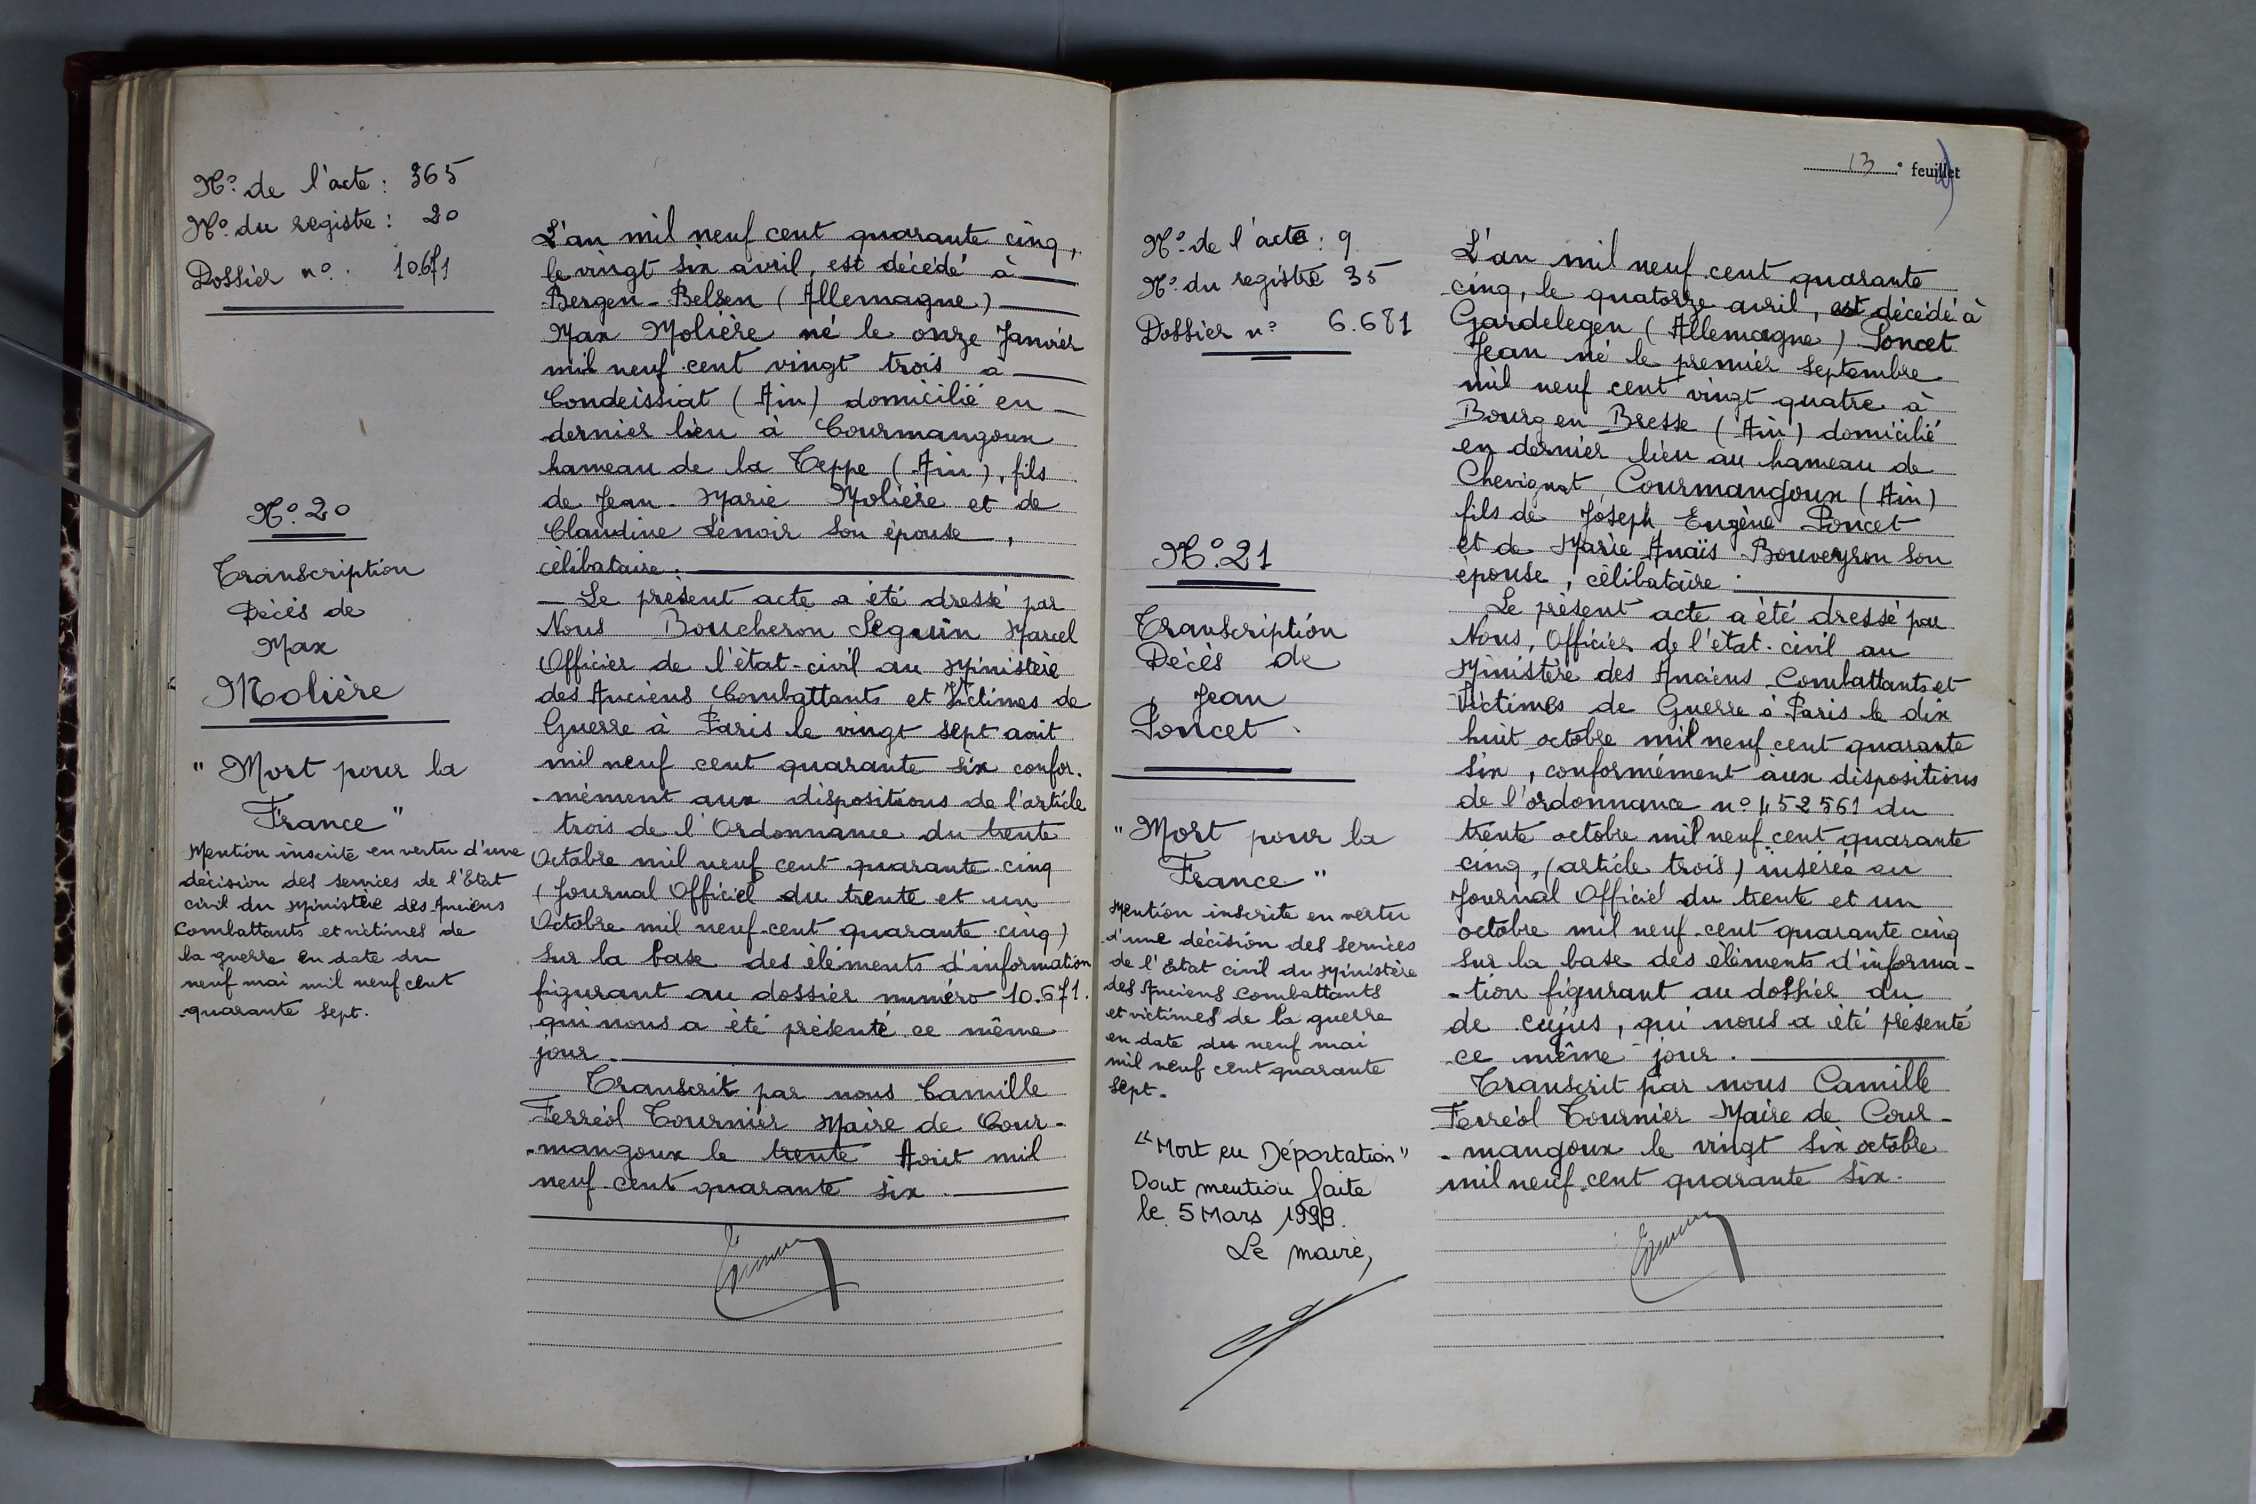 N° de l'acte : 365
N° du registre : 20
Dossier n° : 10.671
N° 20
Transcription
Décès de
Max
Molière
"Mort pour la
France"
Mention inscrite en vertu d'une
décision des services de l'Etat
civil du Ministère des Anciens
Combattants et victimes de
la guerre en date du
neuf mai mil neuf cent
quarante sept.
L'an mil neuf cent quarante cinq,
le vingt six avril, est décédé à
Bergen-Belsen (Allemagne)
Max Molière né le onze Janvier
mil neuf cent vingt trois a
Condeissiat (Ain) domicilié en
dernier lieu à Courmangoux
hameau de la Teppe (Ain), fils
de Jean-Marie Molière et de
Claudine Lenoir son épouse,
célibataire.
Le présent acte a été dressé par
Nous Boucheron Seguin Marcel
Officier de l'état-civil au Ministère
des Anciens Combattants et Victimes de
Guerre à Paris le vingt sept août
mil neuf cent quarante six confor-
-mément aux dispositions de l'article
trois de l'Ordonnance du trente
Octobre mil neuf cent quarante cinq
(Journal Officiel du trente et un
Octobre mil neuf cent quarante cinq)
sur la base des éléments d'information
figurant au dossier numéro 10.671.
qui nous a été présenté ce même
jour.
Transcrit par nous Camille
Ferréol Tournier Maire de Cour-
-mangoux le trente Août mil
neuf cent quarante six.
13 ° feuillet
N° de l'acte : 9
N° du registre 35
Dossier n° 6.681
N° 21
Transcription
Décès de
Jean
Poncet.
"Mort pour la
France"
Mention inscrite en vertu
d'une décision des services
de l'Etat civil du Ministère
des Anciens Combattants
et victimes de la guerre
en date du neuf mai
mil neuf cent quarante
sept.
"Mort en Déportation"
Dont mention faite
le 5 Mars 1999.
Le maire,
L'an mil neuf cent quarante
cinq, le quatorze avril, est décédé à
Gardelegen (Allemagne) Poncet
Jean né le premier septembre
mil neuf cent vingt quatre à
Bourg en Bresse (Ain) domicilié
en dernier lieu au hameau de
Chevignat Courmangoux (Ain)
fils de Joseph Eugène Poncet
et de Marie Anaïs Bouveyron son
épouse, célibataire.
Le présent acte a été dressé par
Nous, Officier de l'état-civil au
Ministère des Anciens Combattants et
Victimes de Guerre à Paris le dix
huit octobre mil neuf cent quarante
six, conformément aux dispositions
de l'ordonnance n° 452561 du
trente octobre mil neuf cent quarante
cinq, (article trois) insérée au
Journal Officiel du trente et un
octobre mil neuf cent quarante cinq
sur la base des éléments d'informa-
-tion figurant au dossier du
de cujus, qui nous a été présenté
ce même jour.
Transcrit par nous Camille
Ferréol Tournier Maire de Cour-
-mangoux le vingt six octobre
mil neuf cent quarante six.